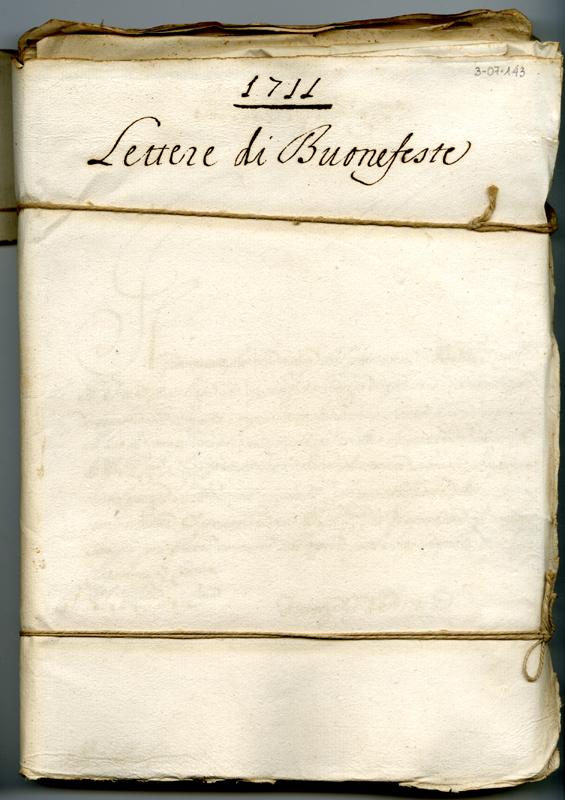 3-07-143
1711
Lettere di Buonefeste